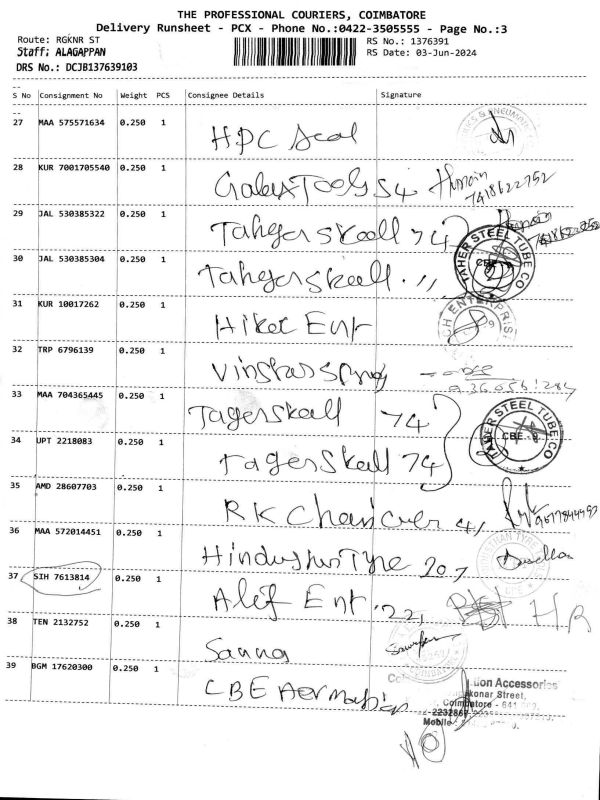 THE PROFESSIONAL COURIERS, COIMBATORE
Delivery Runsheet - PCX - Phone No.:0422-3505555 - Page No.:3
Route: RGKNR ST
RS No.: 1376391
Staff: ALAGAPPAN
RS Date: 03-Jun-2024
DRS No.: DCJB137639103
--
S No Consignment No Weight PCS Consignee Details Signature
--
27 MAA 575571634 0.250 1 HPC Seal
28 KUR 7001705540 0.250 1 Galex Tools 54 7418622752
29 JAL 530385322 0.250 1 Tahger skall 74
30 JAL 530385304 0.250 1 Tahger skall 〃
TAHER STEEL TUBE CO
CBE - 9
31 KUR 10017262 0.250 1 Hikot Ent
32 TRP 6796139 0.250 1
33 MAA 704365445 0.250 1 Tager skall 74
34 UPT 2218083 0.250 1 Tager skall 74
TAHER STEEL TUBE CO
CBE - 9
35 AMD 28607703 0.250 1 RK
36 MAA 572014451 0.250 1 Hindustan Tyre 207
37 SIH 7613814 0.250 1 Alif Ent 22, HR
38 TEN 2132752 0.250 1 Sanna
39 BGM 17620300 0.250 1 CBE
tion Accessories
konar Street,
Coimbatore - 641
Mobile